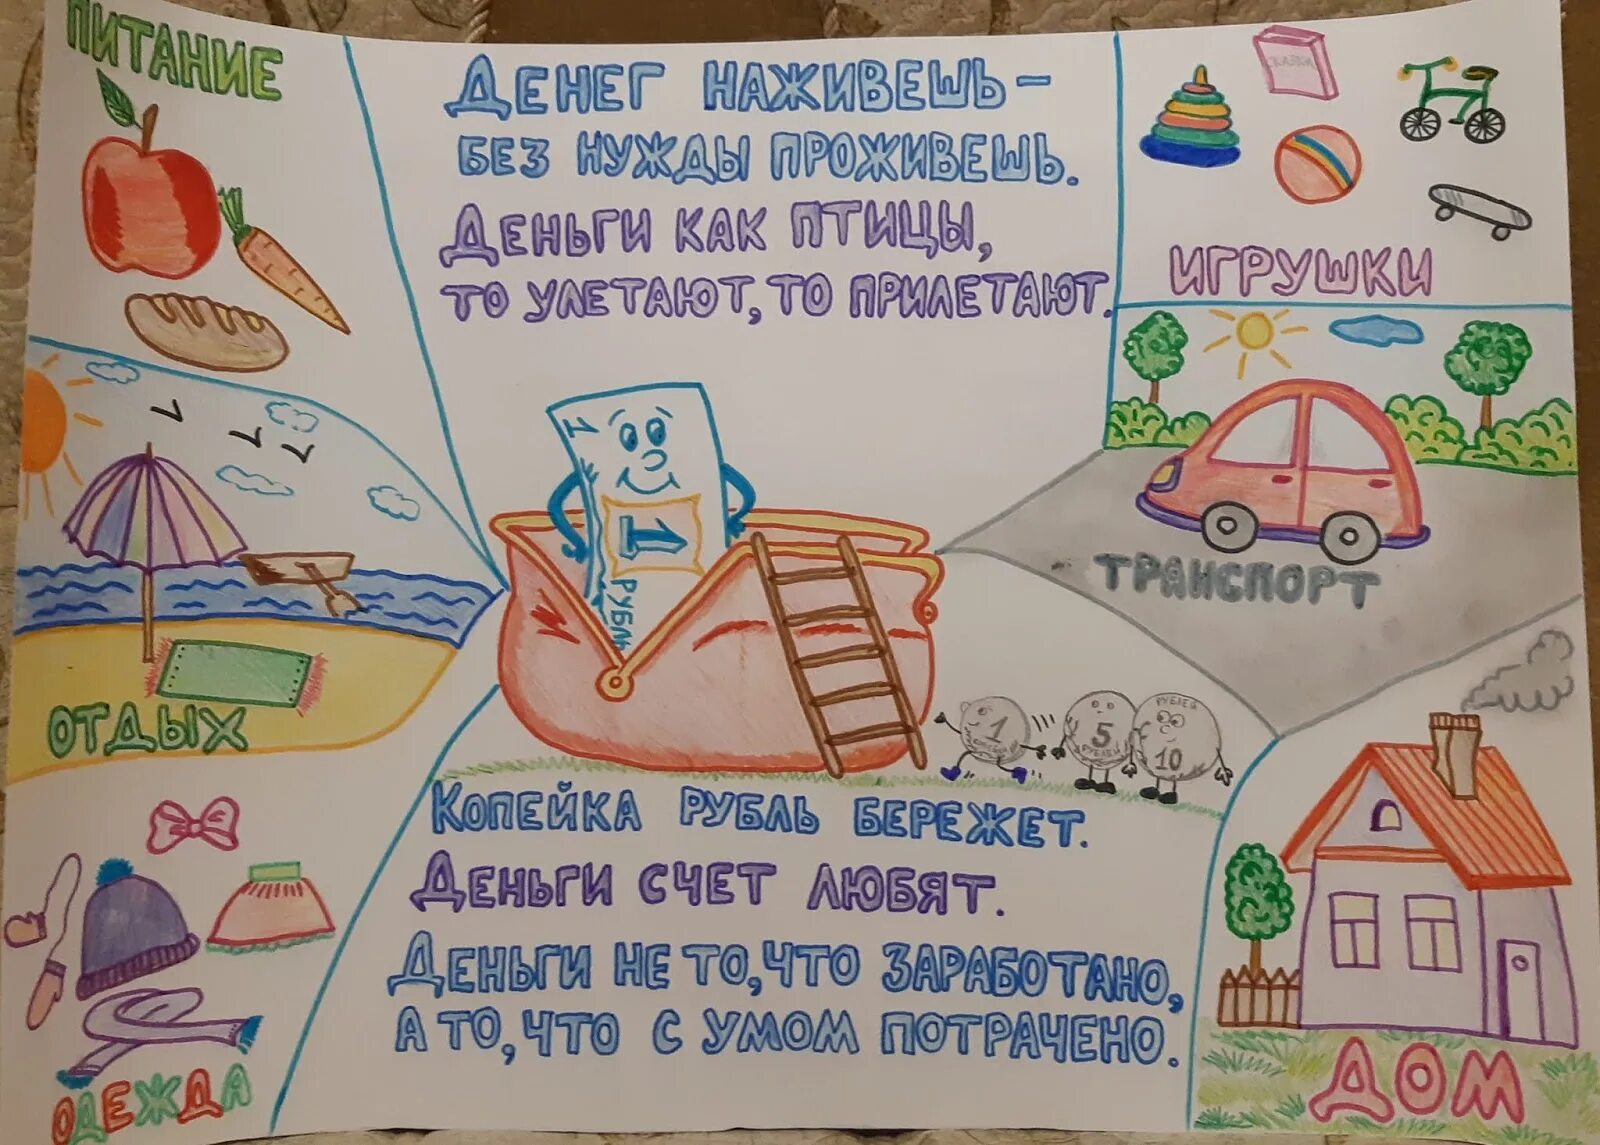 ПИТАНИЕ
ДЕНЕГ НАЖИВЕШЬ -
БЕЗ НУЖДЫ ПРОЖИВЕШЬ.
ДЕНЬГИ КАК ПТИЦЫ,
ТО УЛЕТАЮТ, ТО ПРИЛЕТАЮТ.
СКАЗКИ
ИГРУШКИ
1
1
РУБЛЬ
ТРАНСПОРТ
ОТДЫХ
1
5
РУБЛЕЙ
РУБЛЕЙ
10
КОПЕЙКА РУБЛЬ БЕРЕЖЕТ.
ДЕНЬГИ СЧЕТ ЛЮБЯТ.
ДЕНЬГИ НЕ ТО, ЧТО ЗАРАБОТАНО,
А ТО, ЧТО С УМОМ ПОТРАЧЕНО.
ОДЕЖДА
ДОМ